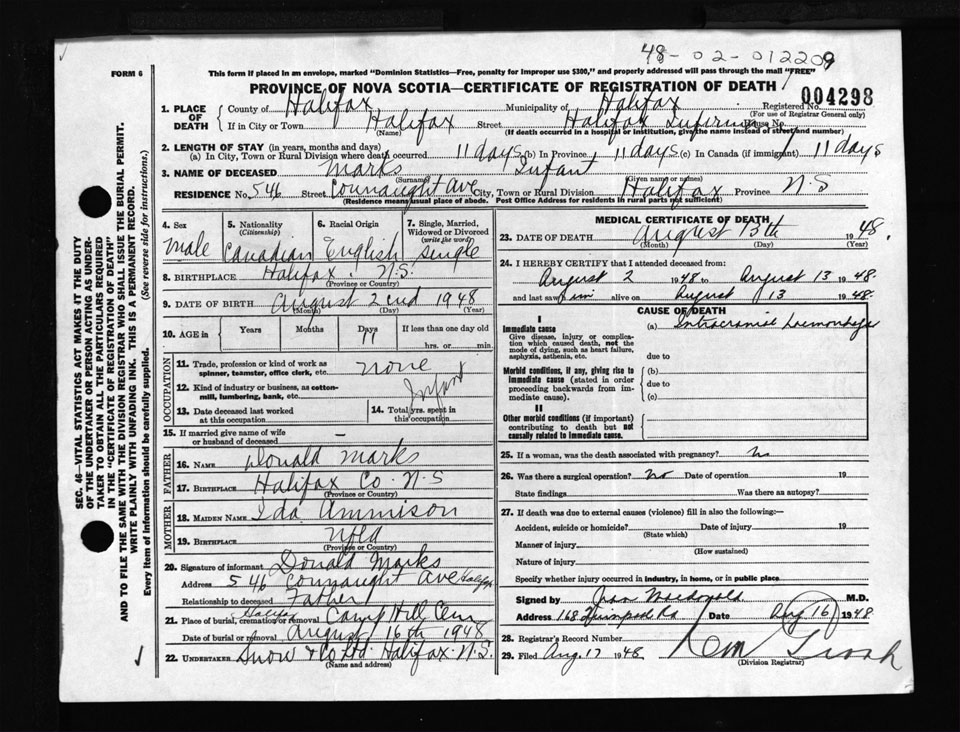 48-02-012209
FORM 6
This form if placed in an envelope, marked "Dominion Statistics—Free, penalty for improper use $300," and properly addressed will pass through the mail "FREE"
PROVINCE OF NOVA SCOTIA—CERTIFICATE OF REGISTRATION OF DEATH
004298
1. PLACE OF DEATH County of Halifax Municipality of Halifax Registered No.
(For use of Registrar General only)
If in City or Town Halifax Street Halifax House No.
(Name) (If death occurred in a hospital or institution, give the name instead of street and number)
2. LENGTH OF STAY (in years, months and days)
(a) In City, Town or Rural Division where death occurred 11 days (b) In Province 11 days (c) In Canada (if immigrant) 11 days
3. NAME OF DECEASED Marks Infant
(Surname) (Given name or names)
RESIDENCE No. 546 Street Connaught Ave City, Town or Rural Division Halifax Province N.S
(Residence means usual place of abode. Post Office Address for residents in rural parts not sufficient)
4. Sex Male
5. Nationality (Citizenship) Canadian
6. Racial Origin English
7. Single, Married, Widowed or Divorced (write the word) Single
8. BIRTHPLACE Halifax. N.S.
(Province or Country)
9. DATE OF BIRTH August 2nd 1948
(Month) (Day) (Year)
10. AGE in Years Months Days 11 If less than one day old
hrs. or min.
OCCUPATION
11. Trade, profession or kind of work as spinner, teamster, office clerk, etc. none
12. Kind of industry or business, as cotton-mill, lumbering, bank, etc. Infant
13. Date deceased last worked at this occupation
14. Total yrs. spent in this occupation
15. If married give name of wife or husband of deceased –
FATHER
16. NAME Donald Marks
17. BIRTHPLACE Halifax Co. N.S
(Province or Country)
MOTHER
18. MAIDEN NAME Ida Ammison
19. BIRTHPLACE Nfld
(Province or Country)
20. Signature of informant Donald Marks
Address 546 Connaught Ave Halifax
Relationship to deceased Father
21. Place of burial, cremation or removal Halifax Camp Hill Cem
Date of burial or removal August 16th 1948
22. UNDERTAKER Snow & Co Ltd. Halifax. N.S.
(Name and address)
MEDICAL CERTIFICATE OF DEATH
23. DATE OF DEATH August 13th 1948.
(Month) (Day) (Year)
24. I HEREBY CERTIFY that I attended deceased from:
August 2 1948 to August 13 1948.
and last saw him alive on August 13 1948.
CAUSE OF DEATH
I
Immediate cause
Give disease, injury or complication which caused death, not the mode of dying, such as heart failure, asphyxia, asthenia, etc.
(a) Intracranial hemorrhage
due to
Morbid conditions, if any, giving rise to immediate cause (stated in order proceeding backwards from immediate cause).
(b)
due to
(c)
II
Other morbid conditions (if important) contributing to death but not causally related to immediate cause.
25. If a woman, was the death associated with pregnancy? No
26. Was there a surgical operation? No Date of operation 19
State findings Was there an autopsy?
27. If death was due to external causes (violence) fill in also the following:—
Accident, suicide or homicide? Date of injury 19
(State which)
Manner of injury
(How sustained)
Nature of injury
Specify whether injury occurred in industry, in home, or in public place
Signed by Macdonald M.D.
Address 168 Quinpool Rd Date Aug 16 1948
28. Registrar's Record Number
29. Filed Aug. 17 1948
(Division Registrar)
SEC. 46—VITAL STATISTICS ACT MAKES IT THE DUTY
OF THE UNDERTAKER OR PERSON ACTING AS UNDER-
TAKER TO OBTAIN ALL THE PARTICULARS REQUIRED
IN THE "CERTIFICATE OF REGISTRATION OF DEATH"
AND TO FILE THE SAME WITH THE DIVISION REGISTRAR WHO SHALL ISSUE THE BURIAL PERMIT.
WRITE PLAINLY WITH UNFADING INK. THIS IS A PERMANENT RECORD.
Every item of information should be carefully supplied. (See reverse side for instructions.)